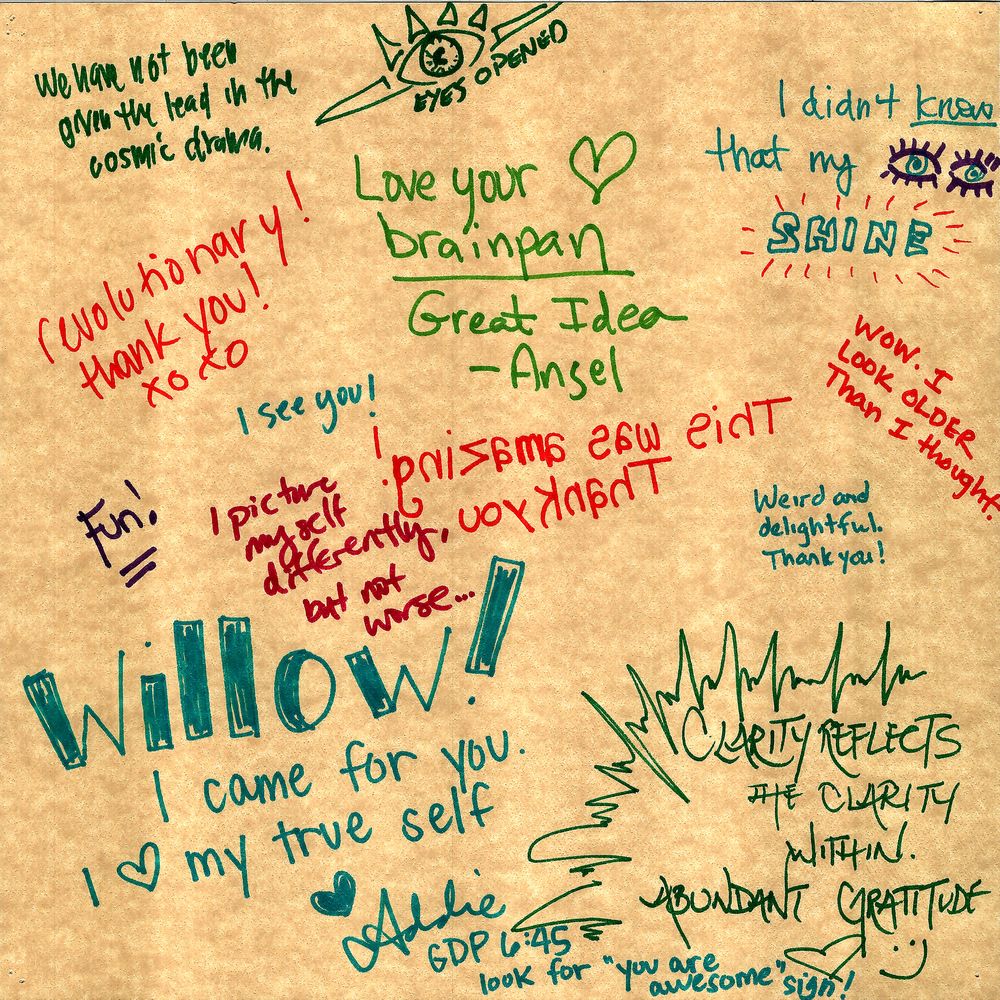 We have not been
given the lead in the
cosmic drama.
EYES OPENED
I didn't know
that my
SHINE
Love your
brainpan
Great Idea
-Angel
revolutionary!
thank you!
xo xo
I see you!
This was amazing!
Thank you
Wow. I
Look OLDER
Than I thought.
Fun!
I picture
myself
differently,
but not
worse...
Weird and
delightful.
Thank you!
Willow!
I came for you.
I ♡ my true self
Addie
GDP 6:45
look for "you are
awesome" sign!
CLARITY REFLECTS
THE CLARITY
WITHIN.
ABUNDANT GRATITUDE